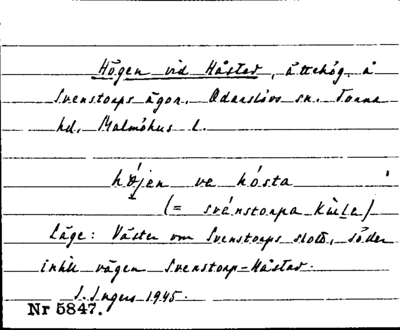 Högen vid Håstad, ättehög å
Svenstorps ägor. Odarslövs sn. Torna
hd. Malmöhus l.
højen ve hósta
(= svénstorpa kule)
Läge: Väster om Svenstorps slott, söder
inkl vägen Svenstorp-Håstad.
I. Ingers 1945.
Nr 5847.